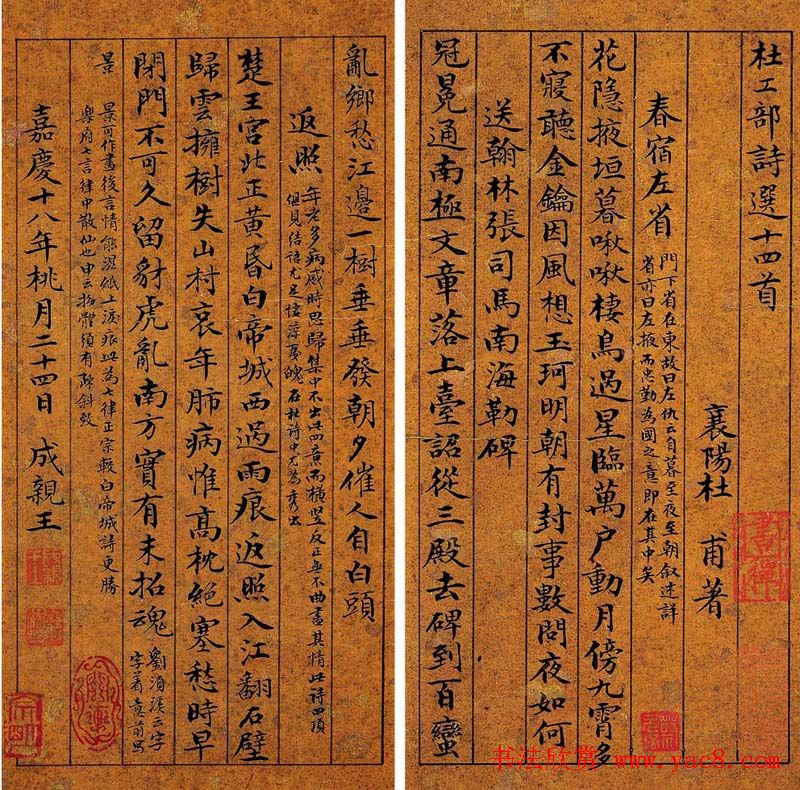 杜工部詩選十四首
襄陽杜 甫著
春宿左省
門下省在東故曰左仇云自暮至夜至朝叙述詳
省亦曰左掖而忠勤為國之意即在其中矣
花隱掖垣暮啾啾棲鳥過星臨萬户動月傍九霄多
不寢聽金鑰因風想玉珂明朝有封事數問夜如何
送翰林張司馬南海勒碑
冠冕通南極文章落上臺詔從三殿去碑到百蠻
亂鄉愁江邊一樹垂垂發朝夕催人自白頭
返照
年老多病感時思歸集中不出此四意而橫豎反正無不曲盡其情此詩四項
俱見結語尤足悽 在杜詩中尤為秀出
楚王宮北正黃昏白帝城西過雨痕返照入江翻石壁
歸雲擁樹失山村哀年肺病惟高枕絕塞愁時早
閉門不可久留豺虎亂南方實有未招魂
劉須溪云字
字着意前寫
景
景可作畫後言情能濕紙上淚痕此為七律正宗較白帝城詩更勝
樂府七言律中散仙也申云拗體須有
嘉慶十八年桃月二十四日 成親王
书法欣赏 www.yac8.com